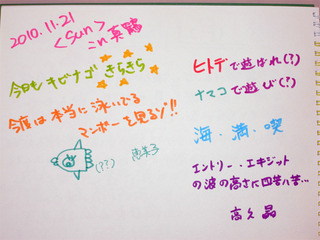 2010.11.21
<Sun>
in 真鶴
今日もキビナゴきらきら
今度は本当に泳いでる
マンボーを見るゾ!!
(??)
恵美子
ヒトデで遊ばれ(?)
ナマコで遊び(?)
海・満・喫
エントリー・エキジット
の波の高さに四苦八苦…
高久 晶